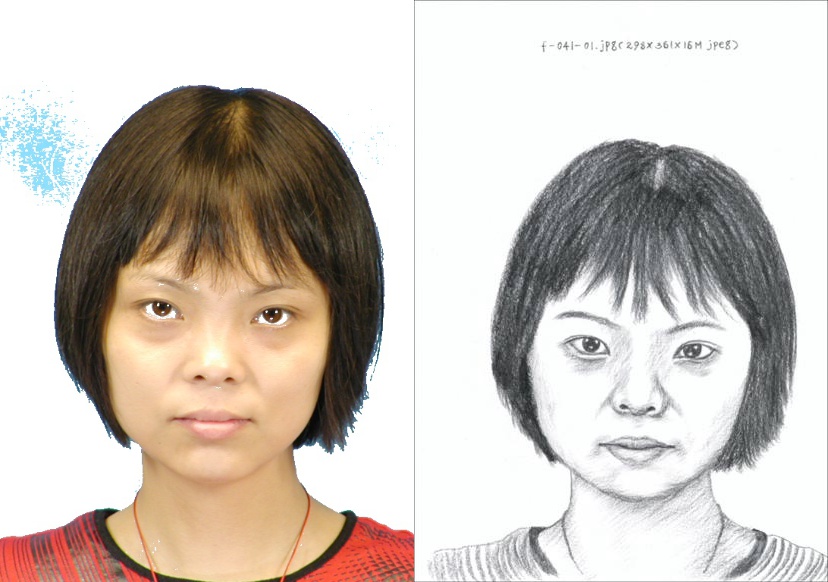 f-041-01.jpg(298x361x16M jpeg)